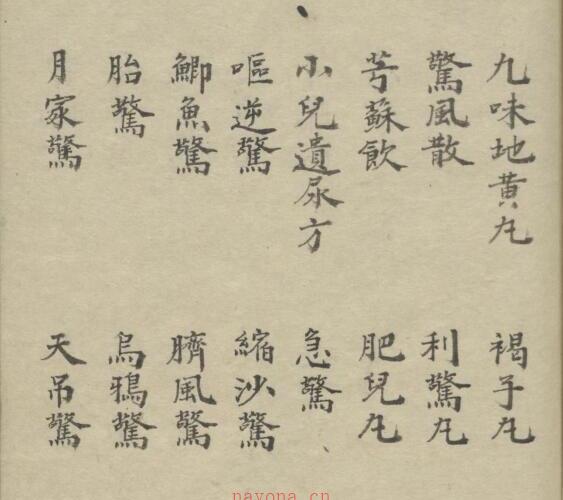 九味地黄丸 褐子丸
驚風散 利驚丸
芎蘇飲 肥兒丸
小兒遺尿方 急驚
嘔逆驚 縮沙驚
鯽魚驚 臍風驚
胎驚 烏鴉驚
月家驚 天吊驚
nayona.cn